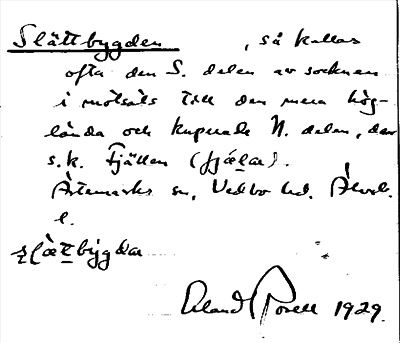 Slättbygden, så kallas
ofta den S. delen av socknen
i motsats till den mera hög-
lända och kuperade N. delen, den
s.k. Fjällen (fjæ̀ḷaṛ).
Ärtemarks sn, Vedbo hd. Älvsb.
l.
slæ̀tbygda
Erland Rosell 1929.